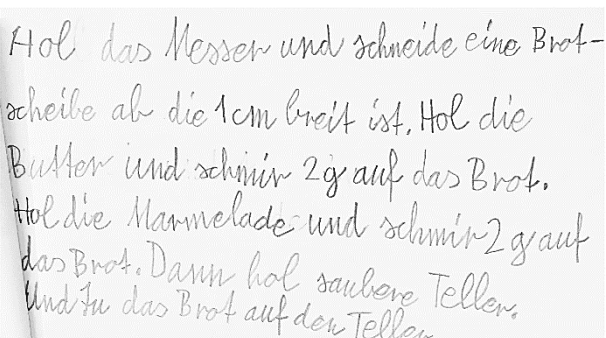 Hol das Messer und schneide eine Brot-
scheibe ab die 1cm breit ist. Hol die
Butter und schmir 2g auf das Brot.
Hol die Marmelade und schmir 2g auf
das Brot. Dann hol saubere Teller.
Und tu das Brot auf den Teller